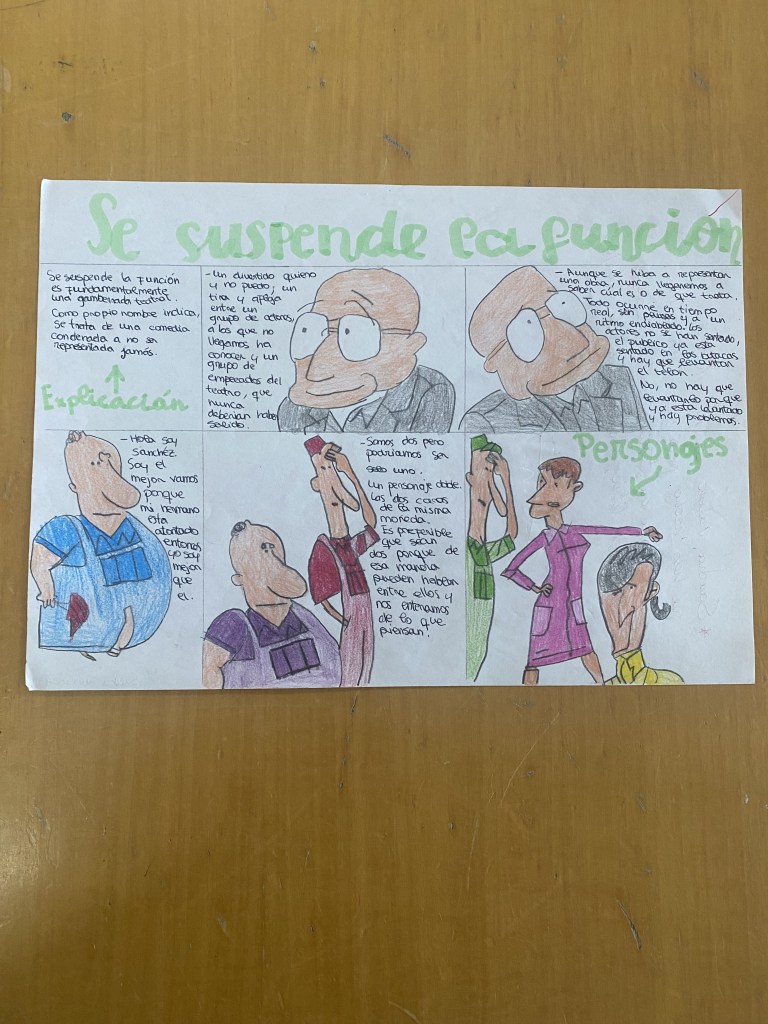 Se suspende la función
Se suspende la función
es fundamentalmente
una gamberrada teatral.
Como propio nombre indica,
se trata de una comedia
condenada a no ser
representada jamás.
Explicación
- Un divertido quiero
y no puedo; un
tira y afloja
entre un
grupo de actores,
a los que no
llegamos ha
conocer y un
grupo de
empleados del
teatro, que
nunca
deberian haber
salido.
- Aunque se hiba a representar
una obra, nunca lleganemos a
saber cuál es, o de que trata.
Todo ocurre en tiempo
real, sin pausas y a un
ritmo endiablado. Los
actores no se han sentado,
el publico ya esta
sentado en las butacas
y hay que levantar
el telon.
No, no hay que
levantarlo porque
ya esta levantado
y hay problemas.
- Hola soy
sanchez
Soy el
mejor vamos
porque
mi hermano
esta
atontado
entonces
yo soy
mejor
que
el.
- Somos dos pero
podriamos ser
solo uno.
Un personaje doble.
Las dos caras
de la misma
moneda.
Es preferible
que sean
dos porque de
esa manera
pueden hablar
entre ellos y
nos enteramos
de lo que
piensan!
Personajes